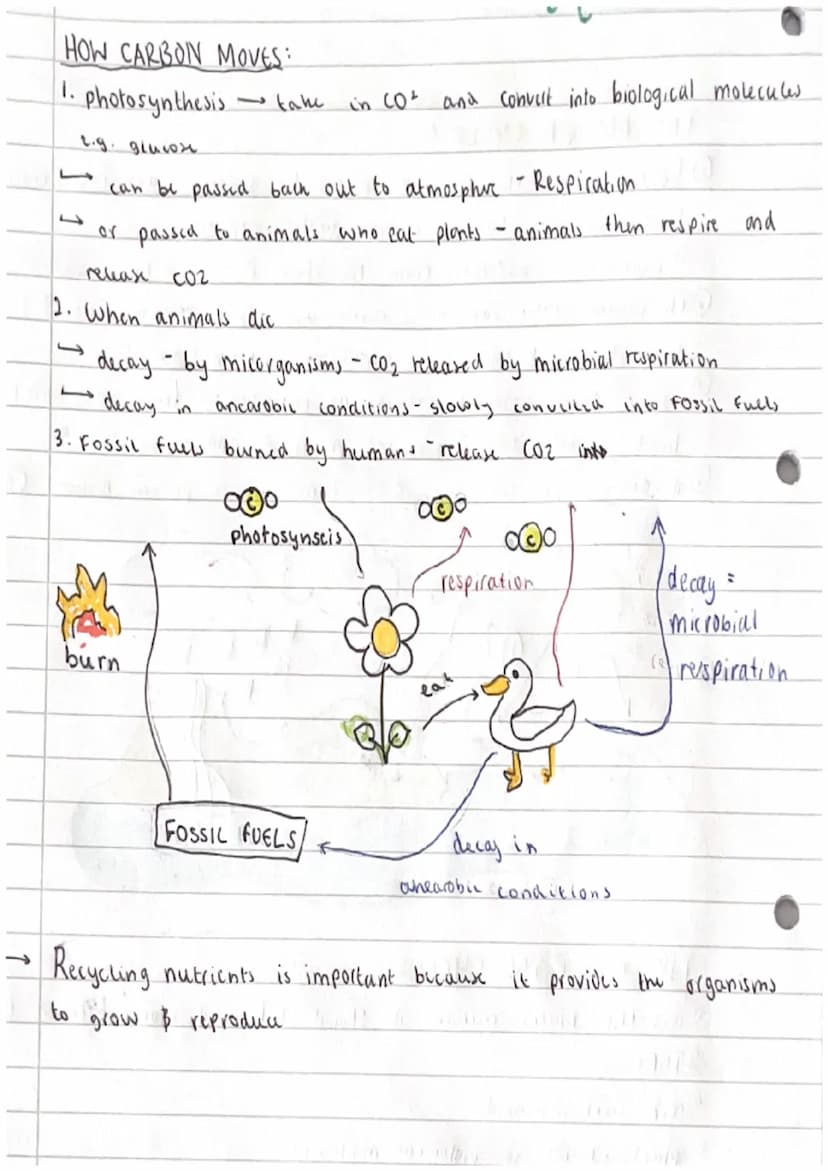 HOW CARBON MOVES:
1. photosynthesis → take in CO² and convert into biological molecules
e.g. glucose
↳ can be passed back out to atmosphre - Respiration
↳ or passed to animals who eat plants - animals then respire and
release CO2
2. When animals die
↳ decay - by micorganisms - CO2 released by microbial respiration
↳ decay in anearobic conditions - slowly converted into FOSSIL fuels
3. Fossil fuels burned by humans - release CO2 into
OCO
OCO
photosynseis
OCO
respiration
decay =
microbial
respiration
burn
eat
FOSSIL FUELS
decay in
anearobic conditions
→ Recycling nutrients is important because it provides the organisms
to grow & reproduce